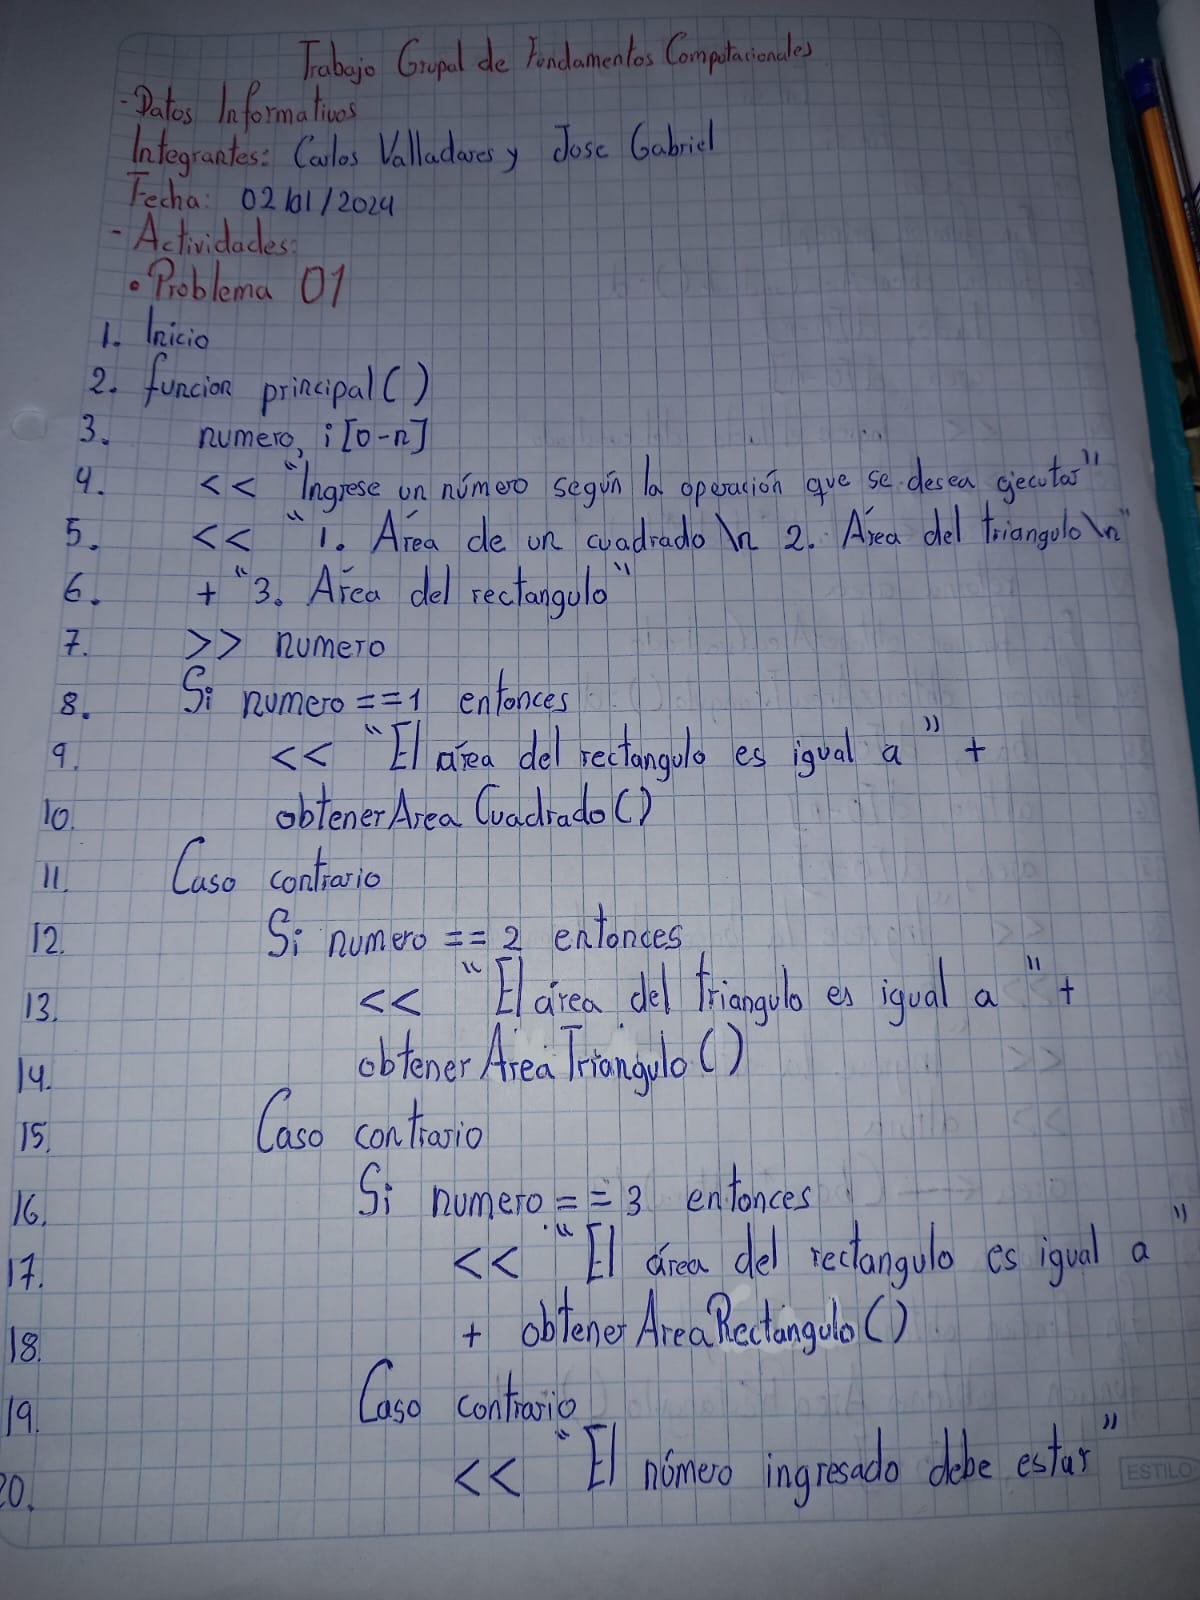 Trabajo Grupal de Fundamentos Computacionales
- Datos Informativos
Integrantes: Carlos Valladares y Jose Gabriel
Fecha: 02/01/2024
- Actividades:
• Problema 01
1. Inicio
2. funcion principal()
3. numero, i [0-n]
4. << "Ingrese un número según la operación que se desea ejecutar"
5. << "1. Área de un cuadrado \n 2. Área del triangulo \n"
6. + "3. Área del rectangulo"
7. >> numero
8. Si numero == 1 entonces
9. << "El área del rectangulo es igual a " +
10. obtenerAreaCuadrado()
11. Caso contrario
12. Si numero == 2 entonces
13. << "El área del triangulo es igual a " +
14. obtenerAreaTriangulo()
15. Caso contrario
16. Si numero == 3 entonces
17. << "El área del rectangulo es igual a "
18. + obtenerAreaRectangulo()
19. Caso contrario
20. << "El número ingresado debe estar"
ESTILO